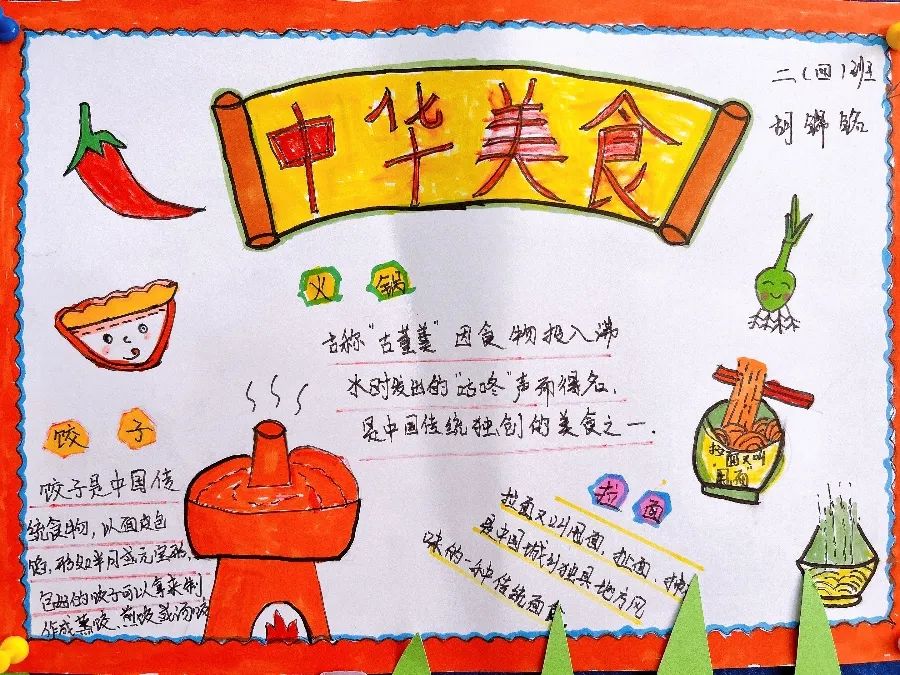 中华美食
二(四)班
胡锦铭
火锅
古称"古董羹"因食物投入沸
水时发出的"咕咚"声而得名,
是中国传统独创的美食之一.
饺子
饺子是中国传
统食物,以面皮包
馅,形如半月或元宝形,
包出的饺子可以拿来制
作成蒸饺、煎饺或汤饺
拉面又叫
"甩面"
拉面
拉面又叫甩面、扯面、
是中国城乡独具地方风
味的一种传统面食